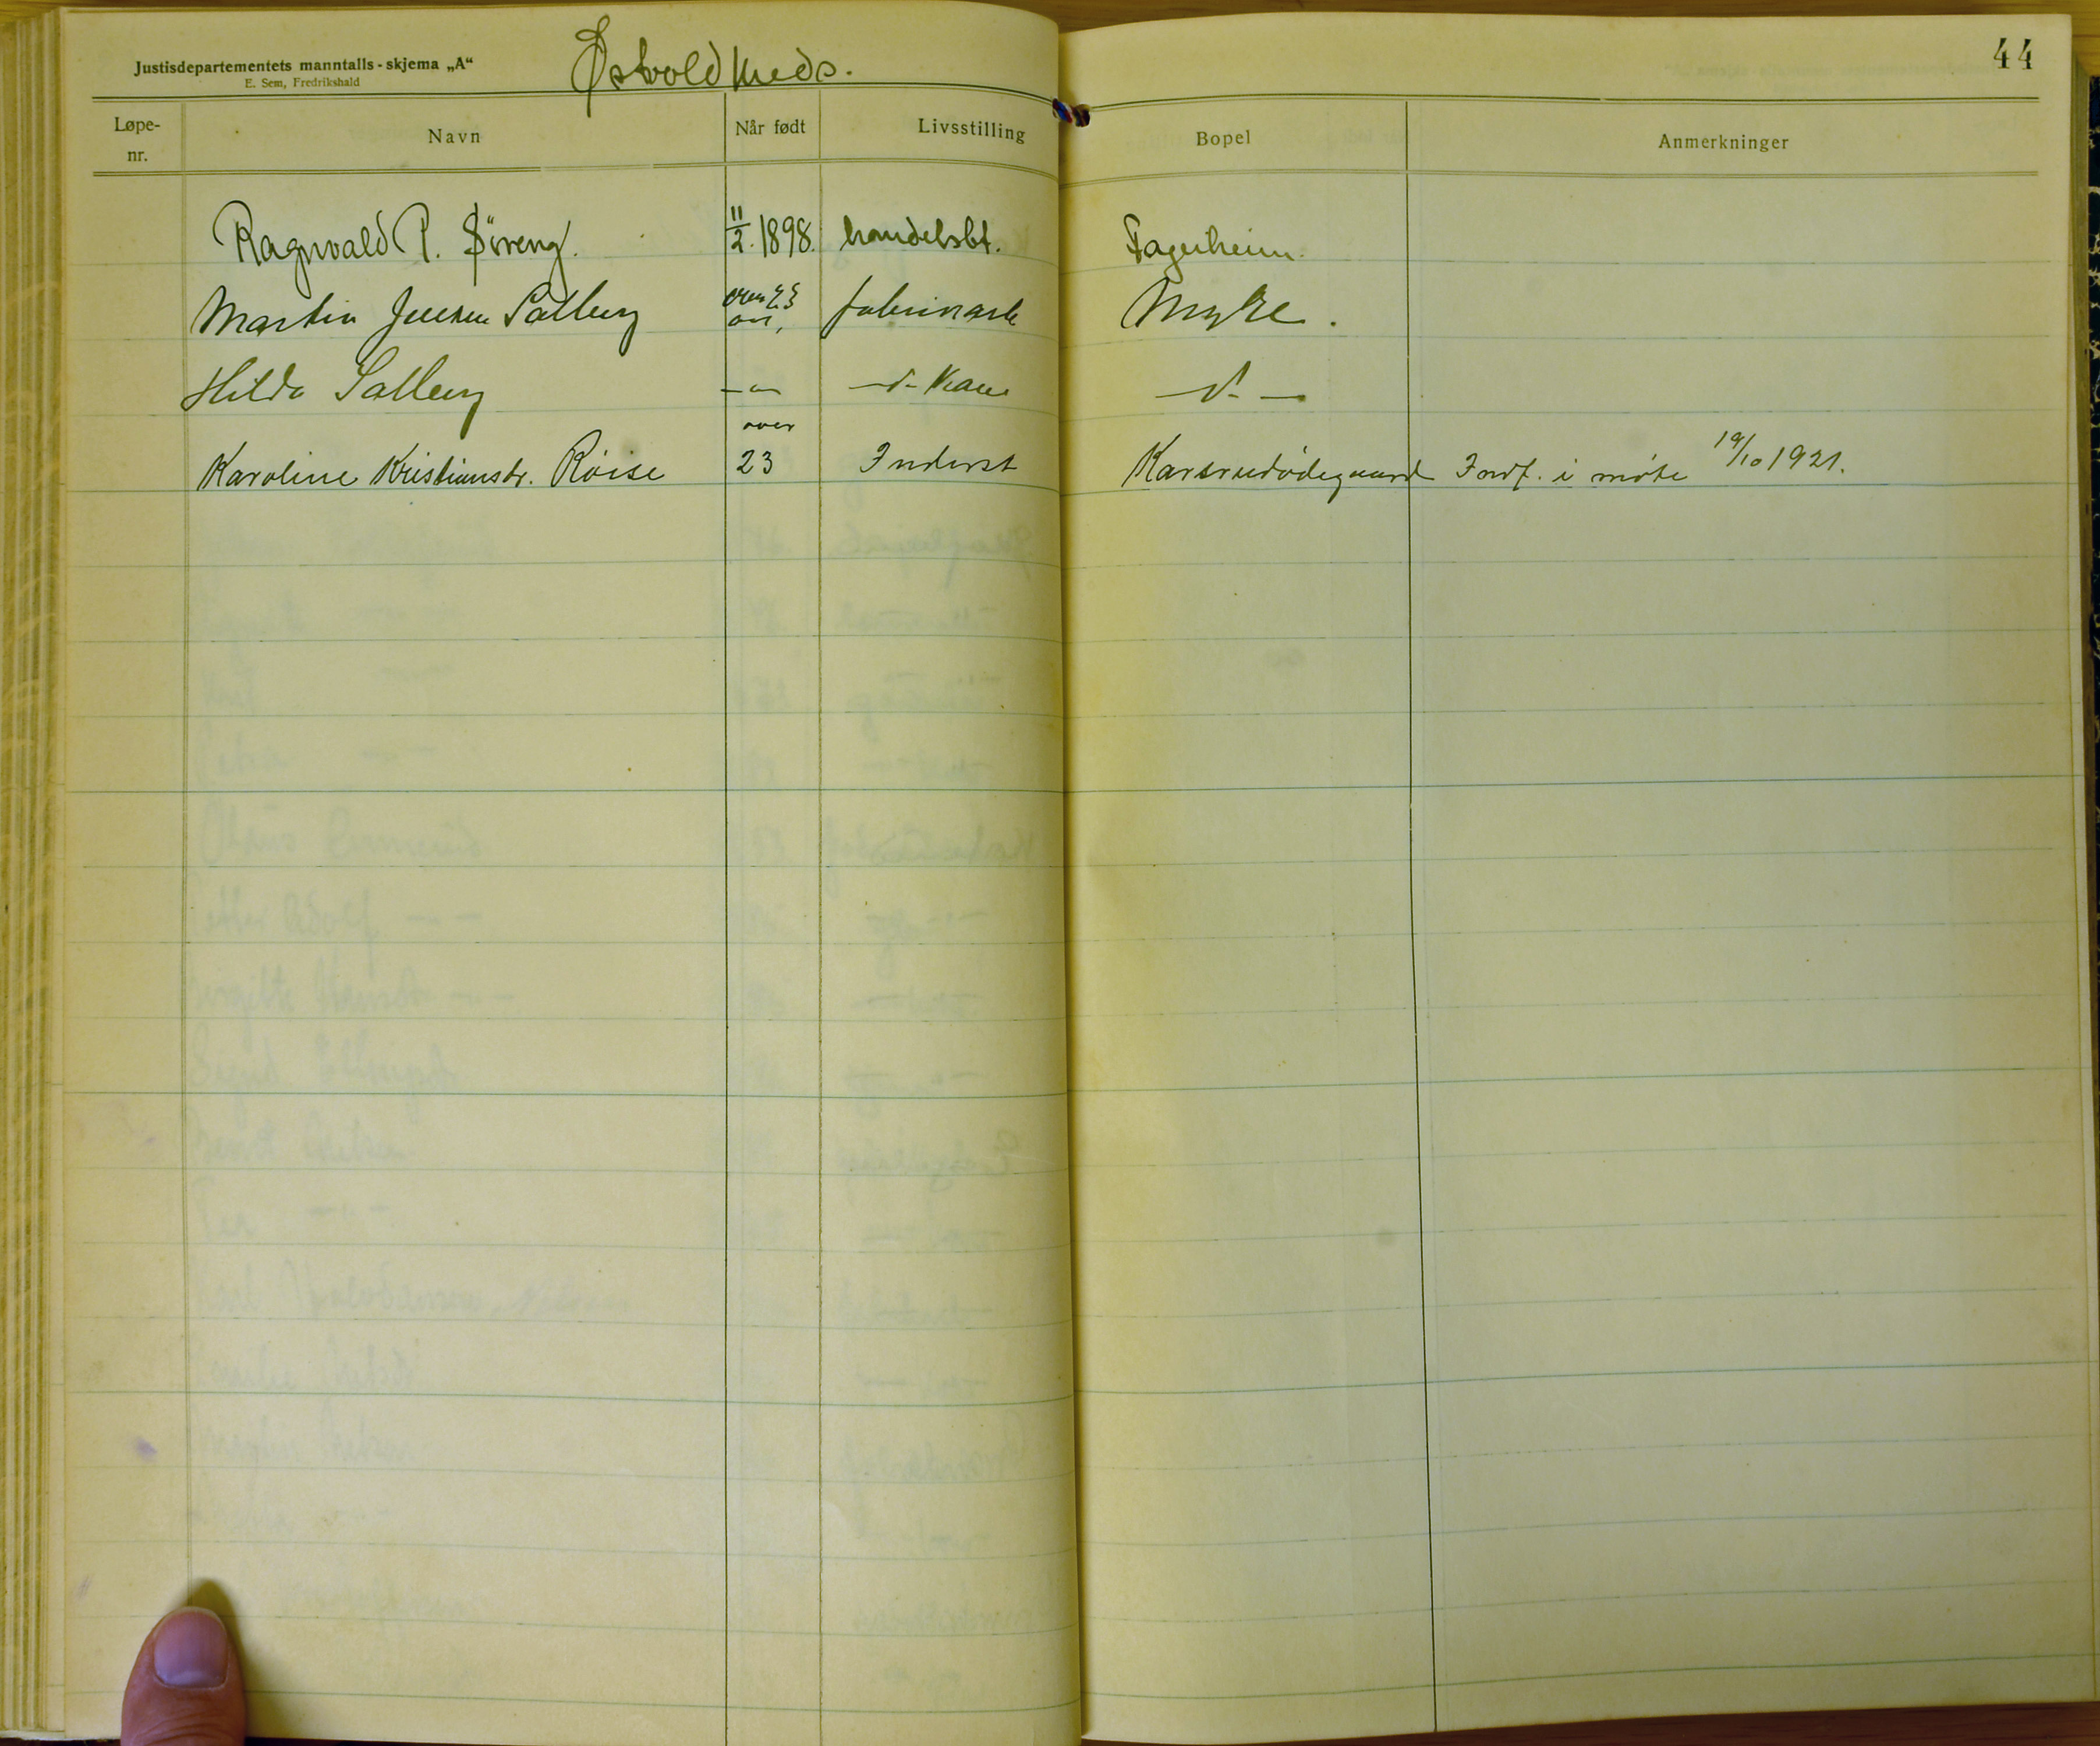 Justisdepartementets manntalls-skjema „A“
E. Sem, Fredrikshald
Østvold Kreds.
44
Løpe-nr. Navn Når født Livsstilling Bopel Anmerkninger
Ragnvald P. Søreng. 11/2. 1898. handelsbt. Fagerheim.
Martin Jensen Solberg over 23 aar, Myre.
Hilda Solberg — " — — d - — d. —
Karoline Kristiansdr. Röise over 23 Inderst Karsrudødegaard Indf. i møte 19/10 1921.